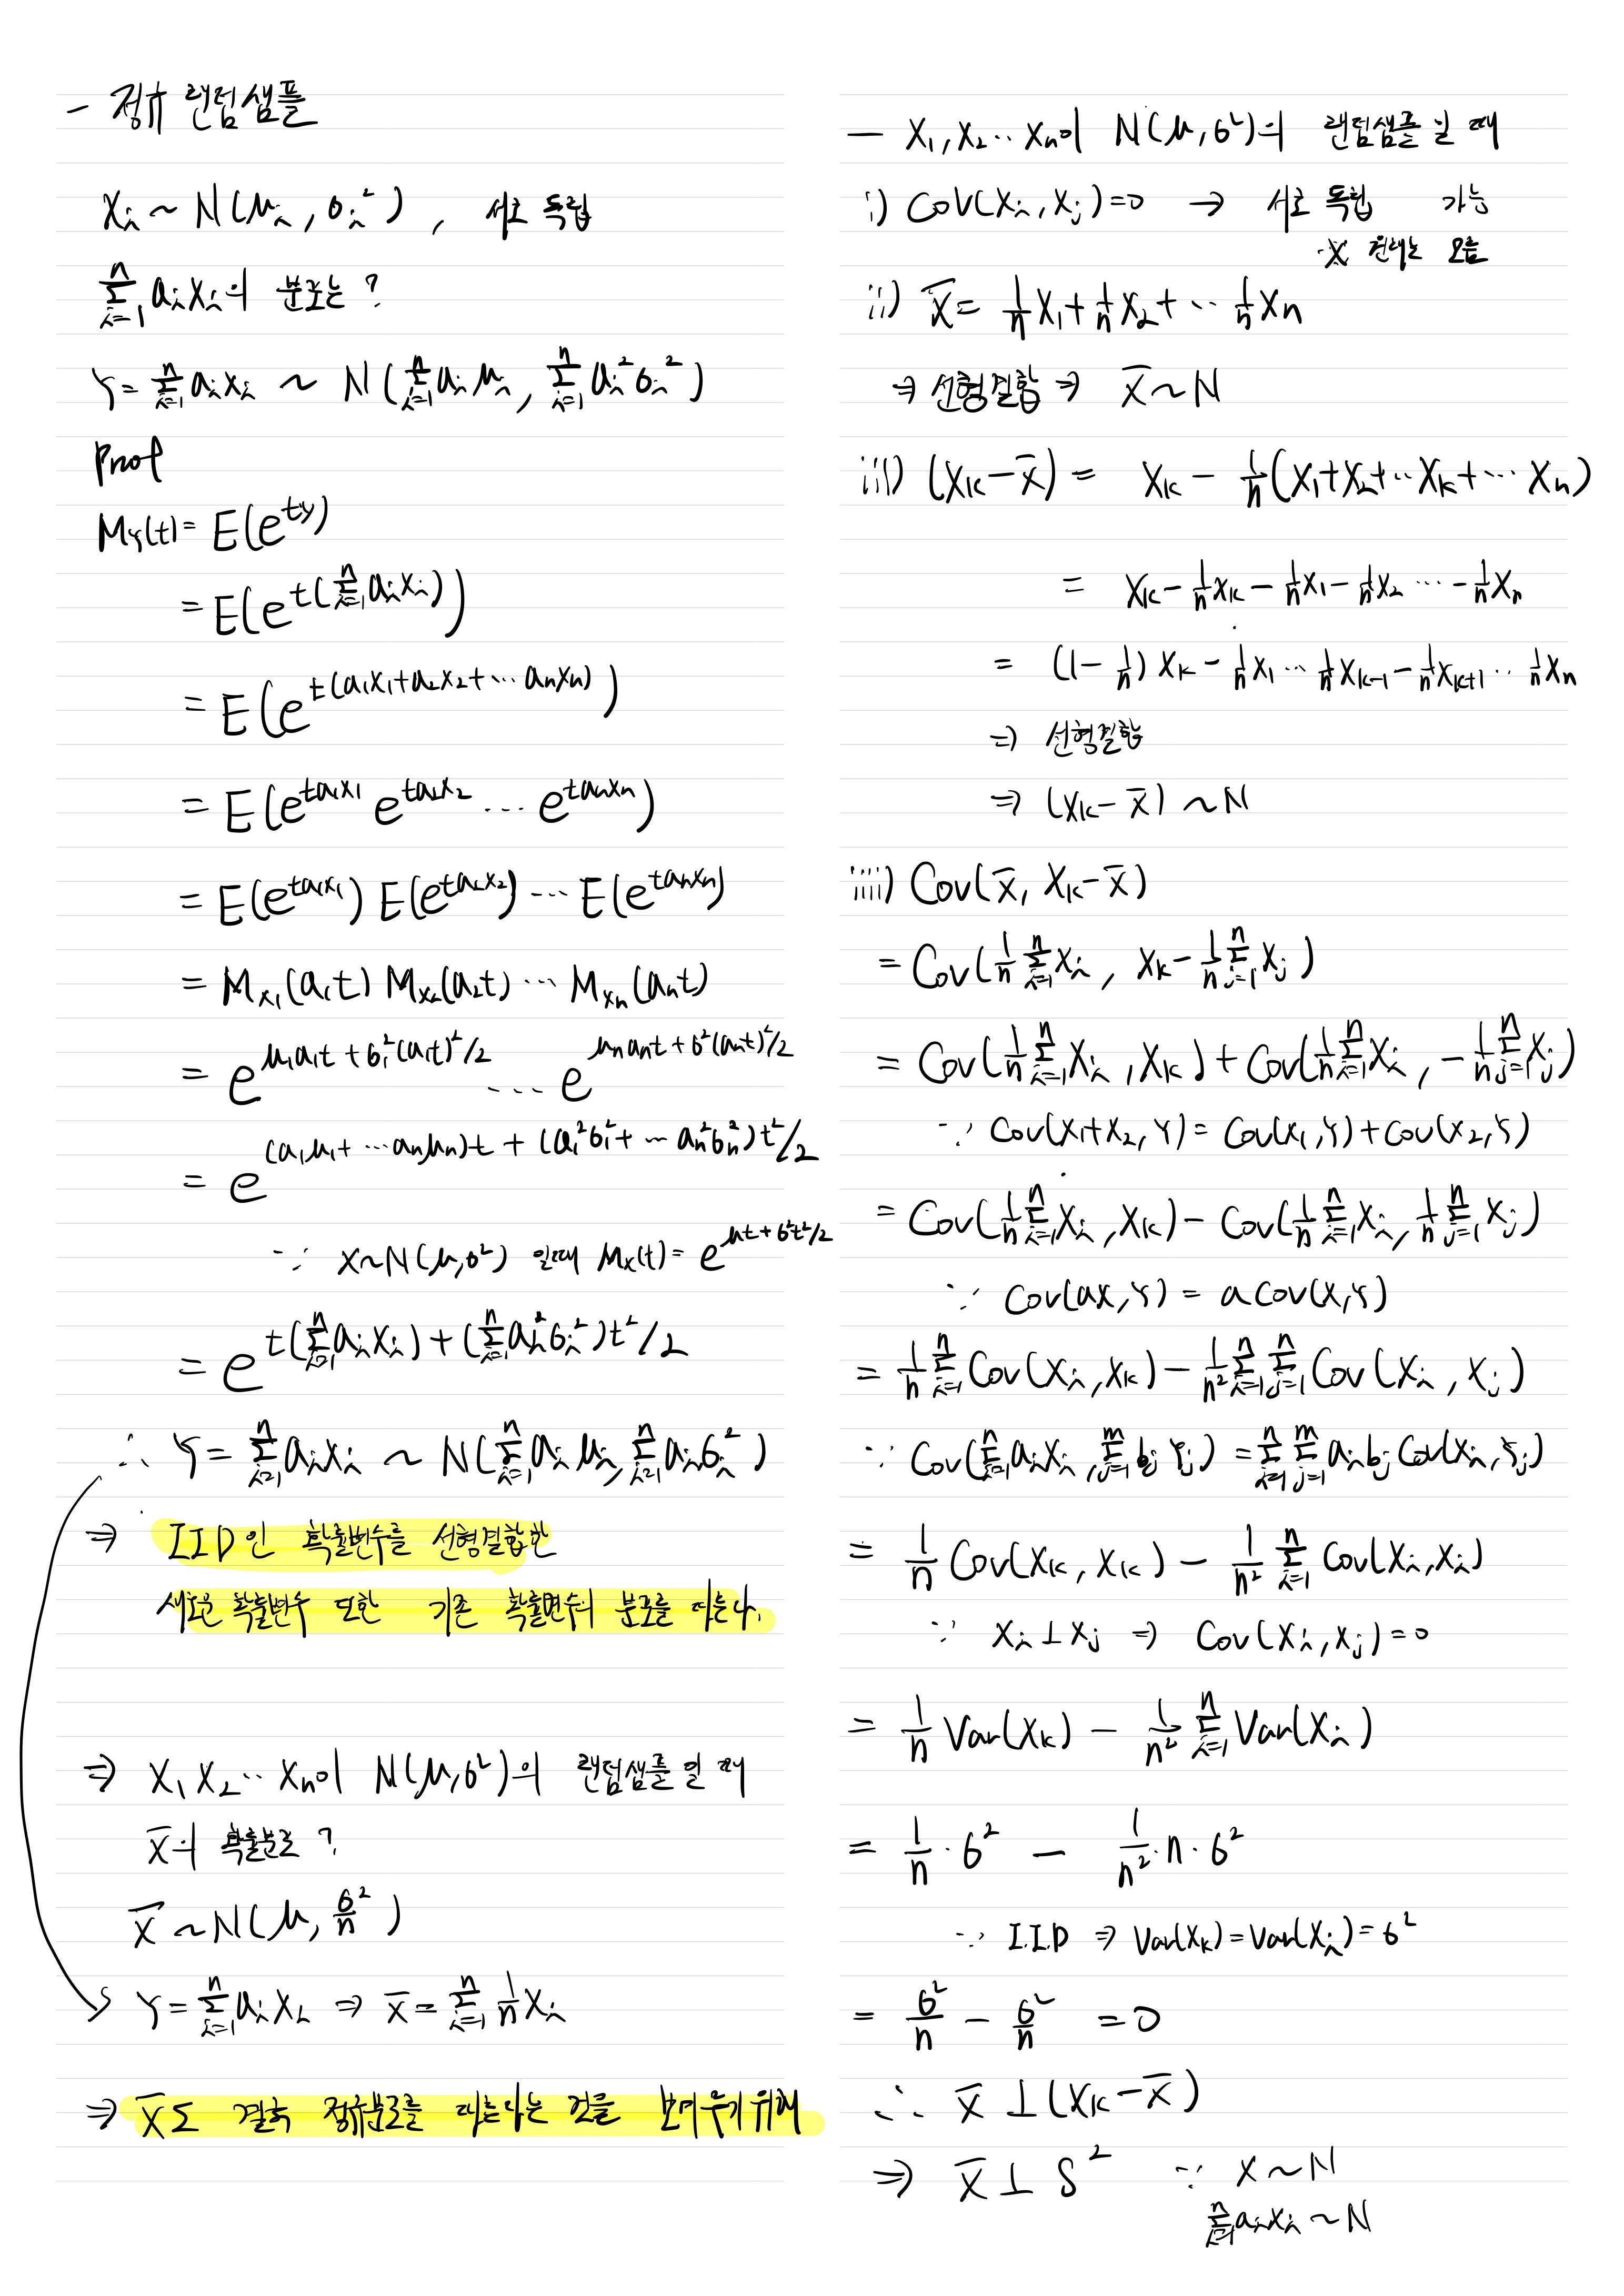 - 정규 랜덤샘플
Xᵢ ~ N(μᵢ, σᵢ²), 서로 독립
Σᵢ₌₁ⁿ aᵢXᵢ의 분포는?
Y = Σᵢ₌₁ⁿ aᵢxᵢ ~ N(Σᵢ₌₁ⁿ aᵢμᵢ, Σᵢ₌₁ⁿ aᵢ²σᵢ²)
Proof
M_Y(t) = E(e^{ty})
= E(e^{t(Σᵢ₌₁ⁿ aᵢxᵢ)})
= E(e^{t(a₁x₁+a₂x₂+⋯aₙxₙ)})
= E(e^{ta₁x₁} e^{ta₂x₂} ⋯ e^{taₙxₙ})
= E(e^{ta₁x₁}) E(e^{ta₂x₂}) ⋯ E(e^{taₙxₙ})
= M_{x₁}(a₁t) M_{x₂}(a₂t) ⋯ M_{xₙ}(aₙt)
= e^{μ₁a₁t + σ₁²(a₁t)²/2} ⋯ e^{μₙaₙt + σ²(aₙt)²/2}
= e^{(a₁μ₁+⋯aₙμₙ)t + (a₁²σ₁²+⋯aₙ²σₙ²)t²/2}
∵ x~N(μ,σ²) 일때 Mₓ(t) = e^{μt+σ²t²/2}
= e^{t(Σᵢ₌₁ⁿ aᵢXᵢ) + (Σᵢ₌₁ⁿ aᵢ²σᵢ²)t²/2}
∴ Y = Σᵢ₌₁ⁿ aᵢxᵢ ~ N(Σᵢ₌₁ⁿ aᵢμᵢ, Σᵢ₌₁ⁿ aᵢσᵢ²)
⇒ IID인 확률변수를 선형결합한
새로운 확률변수 또한 기존 확률변수의 분포를 따른다.
⇒ X₁ X₂ ‥ Xₙ이 N(μ,σ²)의 랜덤샘플일 때
X̄의 확률분포?
X̄ ~ N(μ, σ²/n)
Y = Σᵢ₌₁ⁿ aᵢXᵢ ⇒ X̄ = Σᵢ₌₁ⁿ 1/n Xᵢ
⇒ X̄도 결국 정규분포를 따른다는 것을 보여주기 위해
- X₁, X₂ ‥ Xₙ이 N(μ,σ²)의 랜덤샘플일 때
i) Cov(Xᵢ, Xⱼ)=0 → 서로 독립 가능
※ 원래는 모름
ii) X̄ = 1/n X₁ + 1/n X₂ + ‥ 1/n Xₙ
⇒ 선형결합 ⇒ X̄ ~ N
iii) (Xₖ - X̄) = Xₖ - 1/n(X₁+X₂+‥Xₖ+⋯Xₙ)
= Xₖ - 1/n Xₖ - 1/n X₁ - 1/n X₂ ⋯ - 1/n Xₙ
= (1 - 1/n) Xₖ - 1/n X₁ ⋯ 1/n Xₖ₋₁ - 1/n Xₖ₊₁ ‥ 1/n Xₙ
⇒ 선형결합
⇒ (Xₖ - X̄) ~ N
iiii) Cov(X̄, Xₖ - X̄)
= Cov(1/n Σᵢ₌₁ⁿ Xᵢ, Xₖ - 1/n Σⱼ₌₁ⁿ Xⱼ)
= Cov(1/n Σᵢ₌₁ⁿ Xᵢ, Xₖ) + Cov(1/n Σᵢ₌₁ⁿ Xᵢ, - 1/n Σⱼ₌₁ⁿ Xⱼ)
∵ Cov(X₁+X₂, Y) = Cov(X₁,Y) + Cov(X₂,Y)
= Cov(1/n Σᵢ₌₁ⁿ Xᵢ, Xₖ) - Cov(1/n Σᵢ₌₁ⁿ Xᵢ, 1/n Σⱼ₌₁ⁿ Xⱼ)
∵ Cov(aX,Y) = a Cov(X,Y)
= 1/n Σᵢ₌₁ⁿ Cov(Xᵢ,Xₖ) - 1/n² Σᵢ₌₁ⁿ Σⱼ₌₁ⁿ Cov(Xᵢ, Xⱼ)
∵ Cov(Σᵢ₌₁ⁿ aᵢXᵢ, Σⱼ₌₁ᵐ bⱼYⱼ) = Σᵢ₌₁ⁿ Σⱼ₌₁ᵐ aᵢbⱼ Cov(Xᵢ,Yⱼ)
= 1/n Cov(Xₖ, Xₖ) - 1/n² Σᵢ₌₁ⁿ Cov(Xᵢ,Xᵢ)
∵ Xᵢ ⊥ Xⱼ ⇒ Cov(Xᵢ, Xⱼ)=0
= 1/n Var(Xₖ) - 1/n² Σᵢ₌₁ⁿ Var(Xᵢ)
= 1/n · σ² - 1/n² · n · σ²
∵ I.I.D ⇒ Var(Xₖ) = Var(Xᵢ) = σ²
= σ²/n - σ²/n = 0
∴ X̄ ⊥ (Xₖ - X̄)
⇒ X̄ ⊥ S² ∵ X ~ N
Σᵢ₌₁ⁿ aᵢXᵢ ~ N